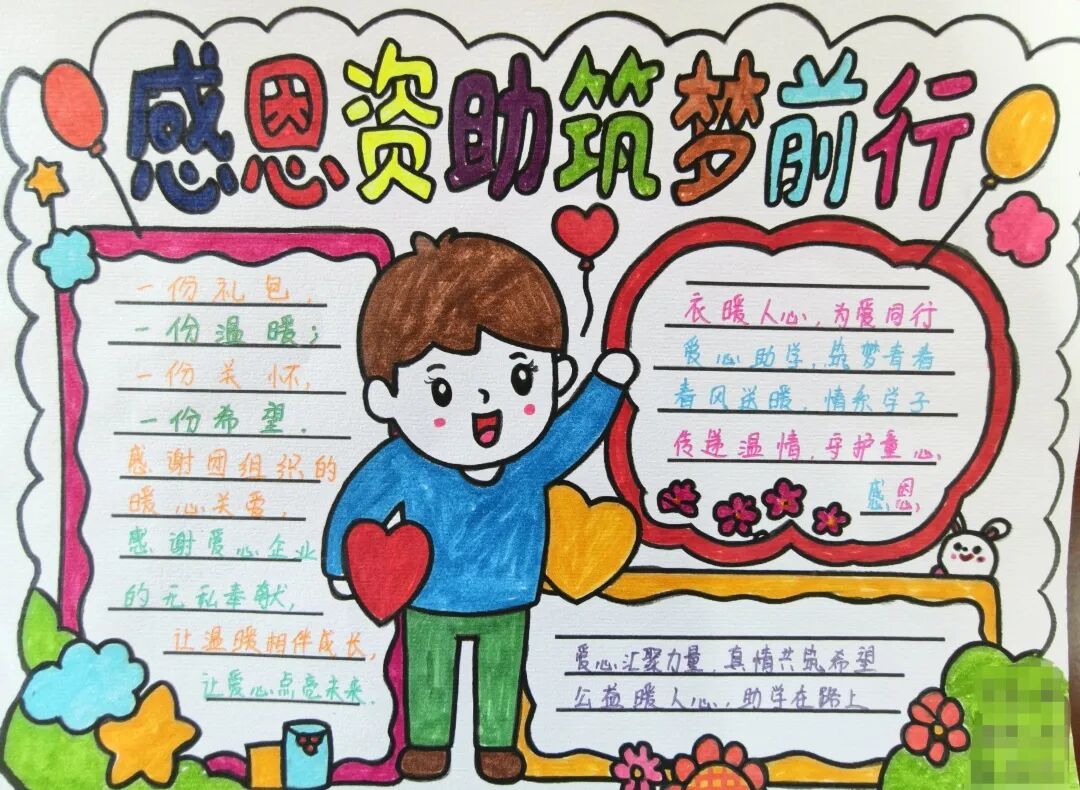 感恩资助筑梦前行
一份礼包，
一份温暖；
一份关怀，
一份希望．
感谢团组织的
暖心关爱，
感谢爱心企业
的无私奉献，
让温暖相伴成长，
让爱心点亮未来．
衣暖人心，为爱同行
爱心助学，筑梦青春
春风送暖，情系学子
传递温情，守护童心、
感恩，
爱心汇聚力量，真情共筑希望
公益暖人心，助学在路上